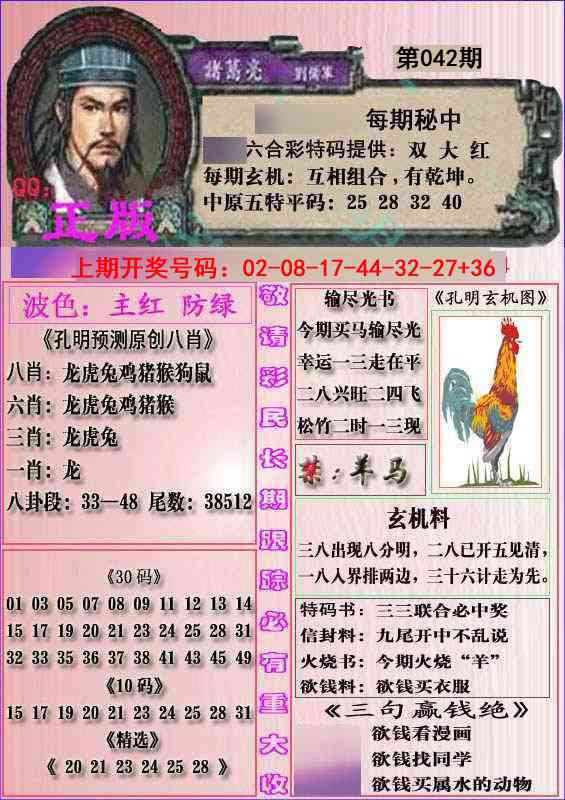 第042期
諸葛亮
劉備軍
每期秘中
六合彩特码提供：双 大 红
每期玄机：互相组合，有乾坤。
中原五特平码：25 28 32 40
QQ：
正版
上期开奖号码：02-08-17-44-32-27+36
波色：主红 防绿
《孔明预测原创八肖》
八肖：龙虎兔鸡猪猴狗鼠
六肖：龙虎兔鸡猪猴
三肖：龙虎兔
一肖：龙
八卦段：33—48 尾数：38512
《30码》
01 03 05 07 08 09 11 12 13 14
15 17 19 20 21 23 24 25 28 31
32 33 35 36 37 38 41 43 45 49
《10码》
15 17 19 20 21 23 24 25 28 31
《精选》
《 20 21 23 24 25 28 》
敬请彩民长期跟踪必有重大收
输尽光书
今期买马输尽光
幸运一三走在平
二八兴旺二四飞
松竹二时一三现
禁：羊马
《孔明玄机图》
玄机料
三八出现八分明，二八已开五见清，
一八人界排两边，三十六计走为先。
特码书：三三联合必中奖
信封料：九尾开中不乱说
火烧书：今期火烧“羊”
欲钱料：欲钱买衣服
《三句赢钱绝》
欲钱看漫画
欲钱找同学
欲钱买属水的动物